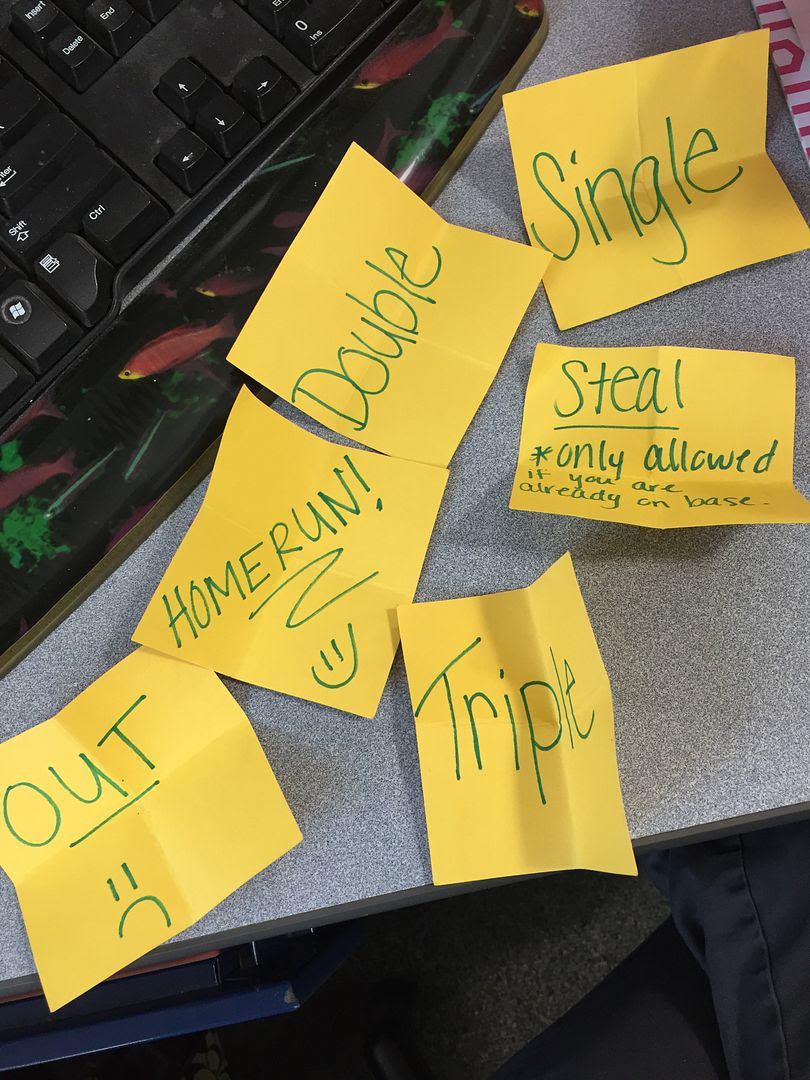 Insert
End
Delete
0
Ins
Shift
Ctrl
Single
Double
Steal
*only allowed
if you are
already on base.
HOMERUN!
Triple
OUT